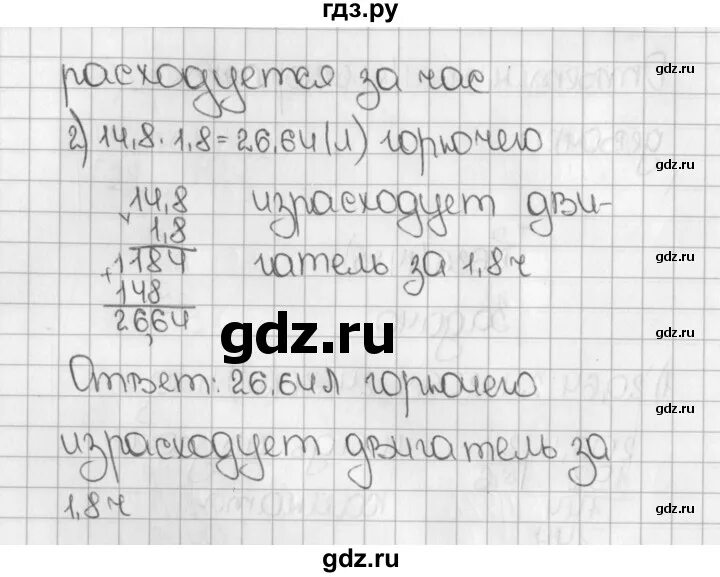 гдз.ру
расходуется за час
gdz.ru
2) 14,8 · 1,8 = 26,64 (л) горючего
gdz.ru
14,8 израсходует дви-
× 1,8
gdz.ru
+1184 гатель за 1,8 ч
gdz.ru
148
2664
gdz.ru
gdz.ru
Ответ: 26,64 л горючего
gdz.ru
израсходует двигатель за
gdz.ru
1,8 ч
gdz.ru
gdz.ru